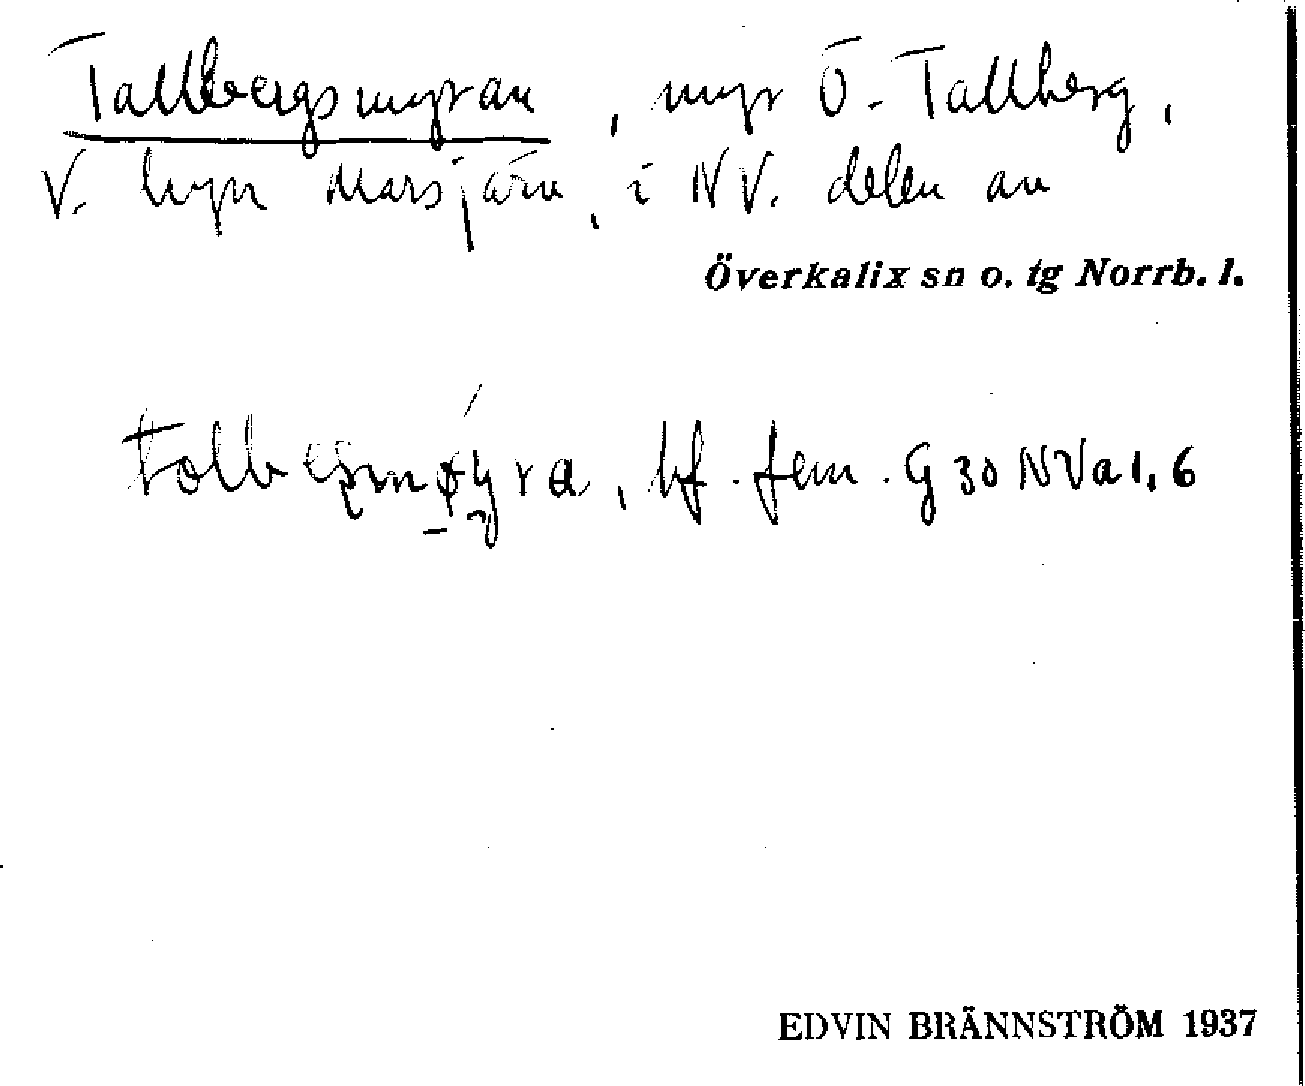 Tallbergsmyran, myr Ö. Tallberg,
V. byn Marsjärn, i NV. delen av
Överkalix sn o. tg Norrb. l.
bf. fem. G 30 NVa1,6
EDVIN BRÄNNSTRÖM 1937